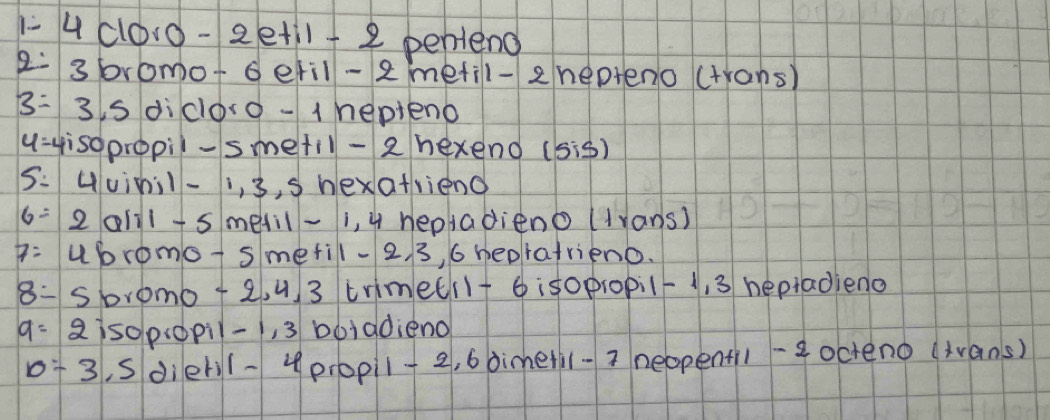 1- 4 cloro - 2 etil - 2 penteno
2- 3 bromo - 6 etil - 2 metil - 2 hepteno (trans)
3= 3,5 dicloro - 1 hepteno
4=4isopropil - 5 metil - 2 hexeno (sis)
5= 4 vinil - 1,3,5 hexatrieno
6= 2 alil - 5 metil - 1,4 heptadieno (trans)
7= 4 bromo - 5 metil - 2,3,6 heptatrieno.
8= 5 bromo - 2,4,3 trimetil - 6 isopropil - 1,3 heptadieno
9= 2 isopropil - 1,3 botadieno
10= 3,5 dietil - 4 propil - 2,6 dimetil - 7 neopentil - 2 octeno (trans)